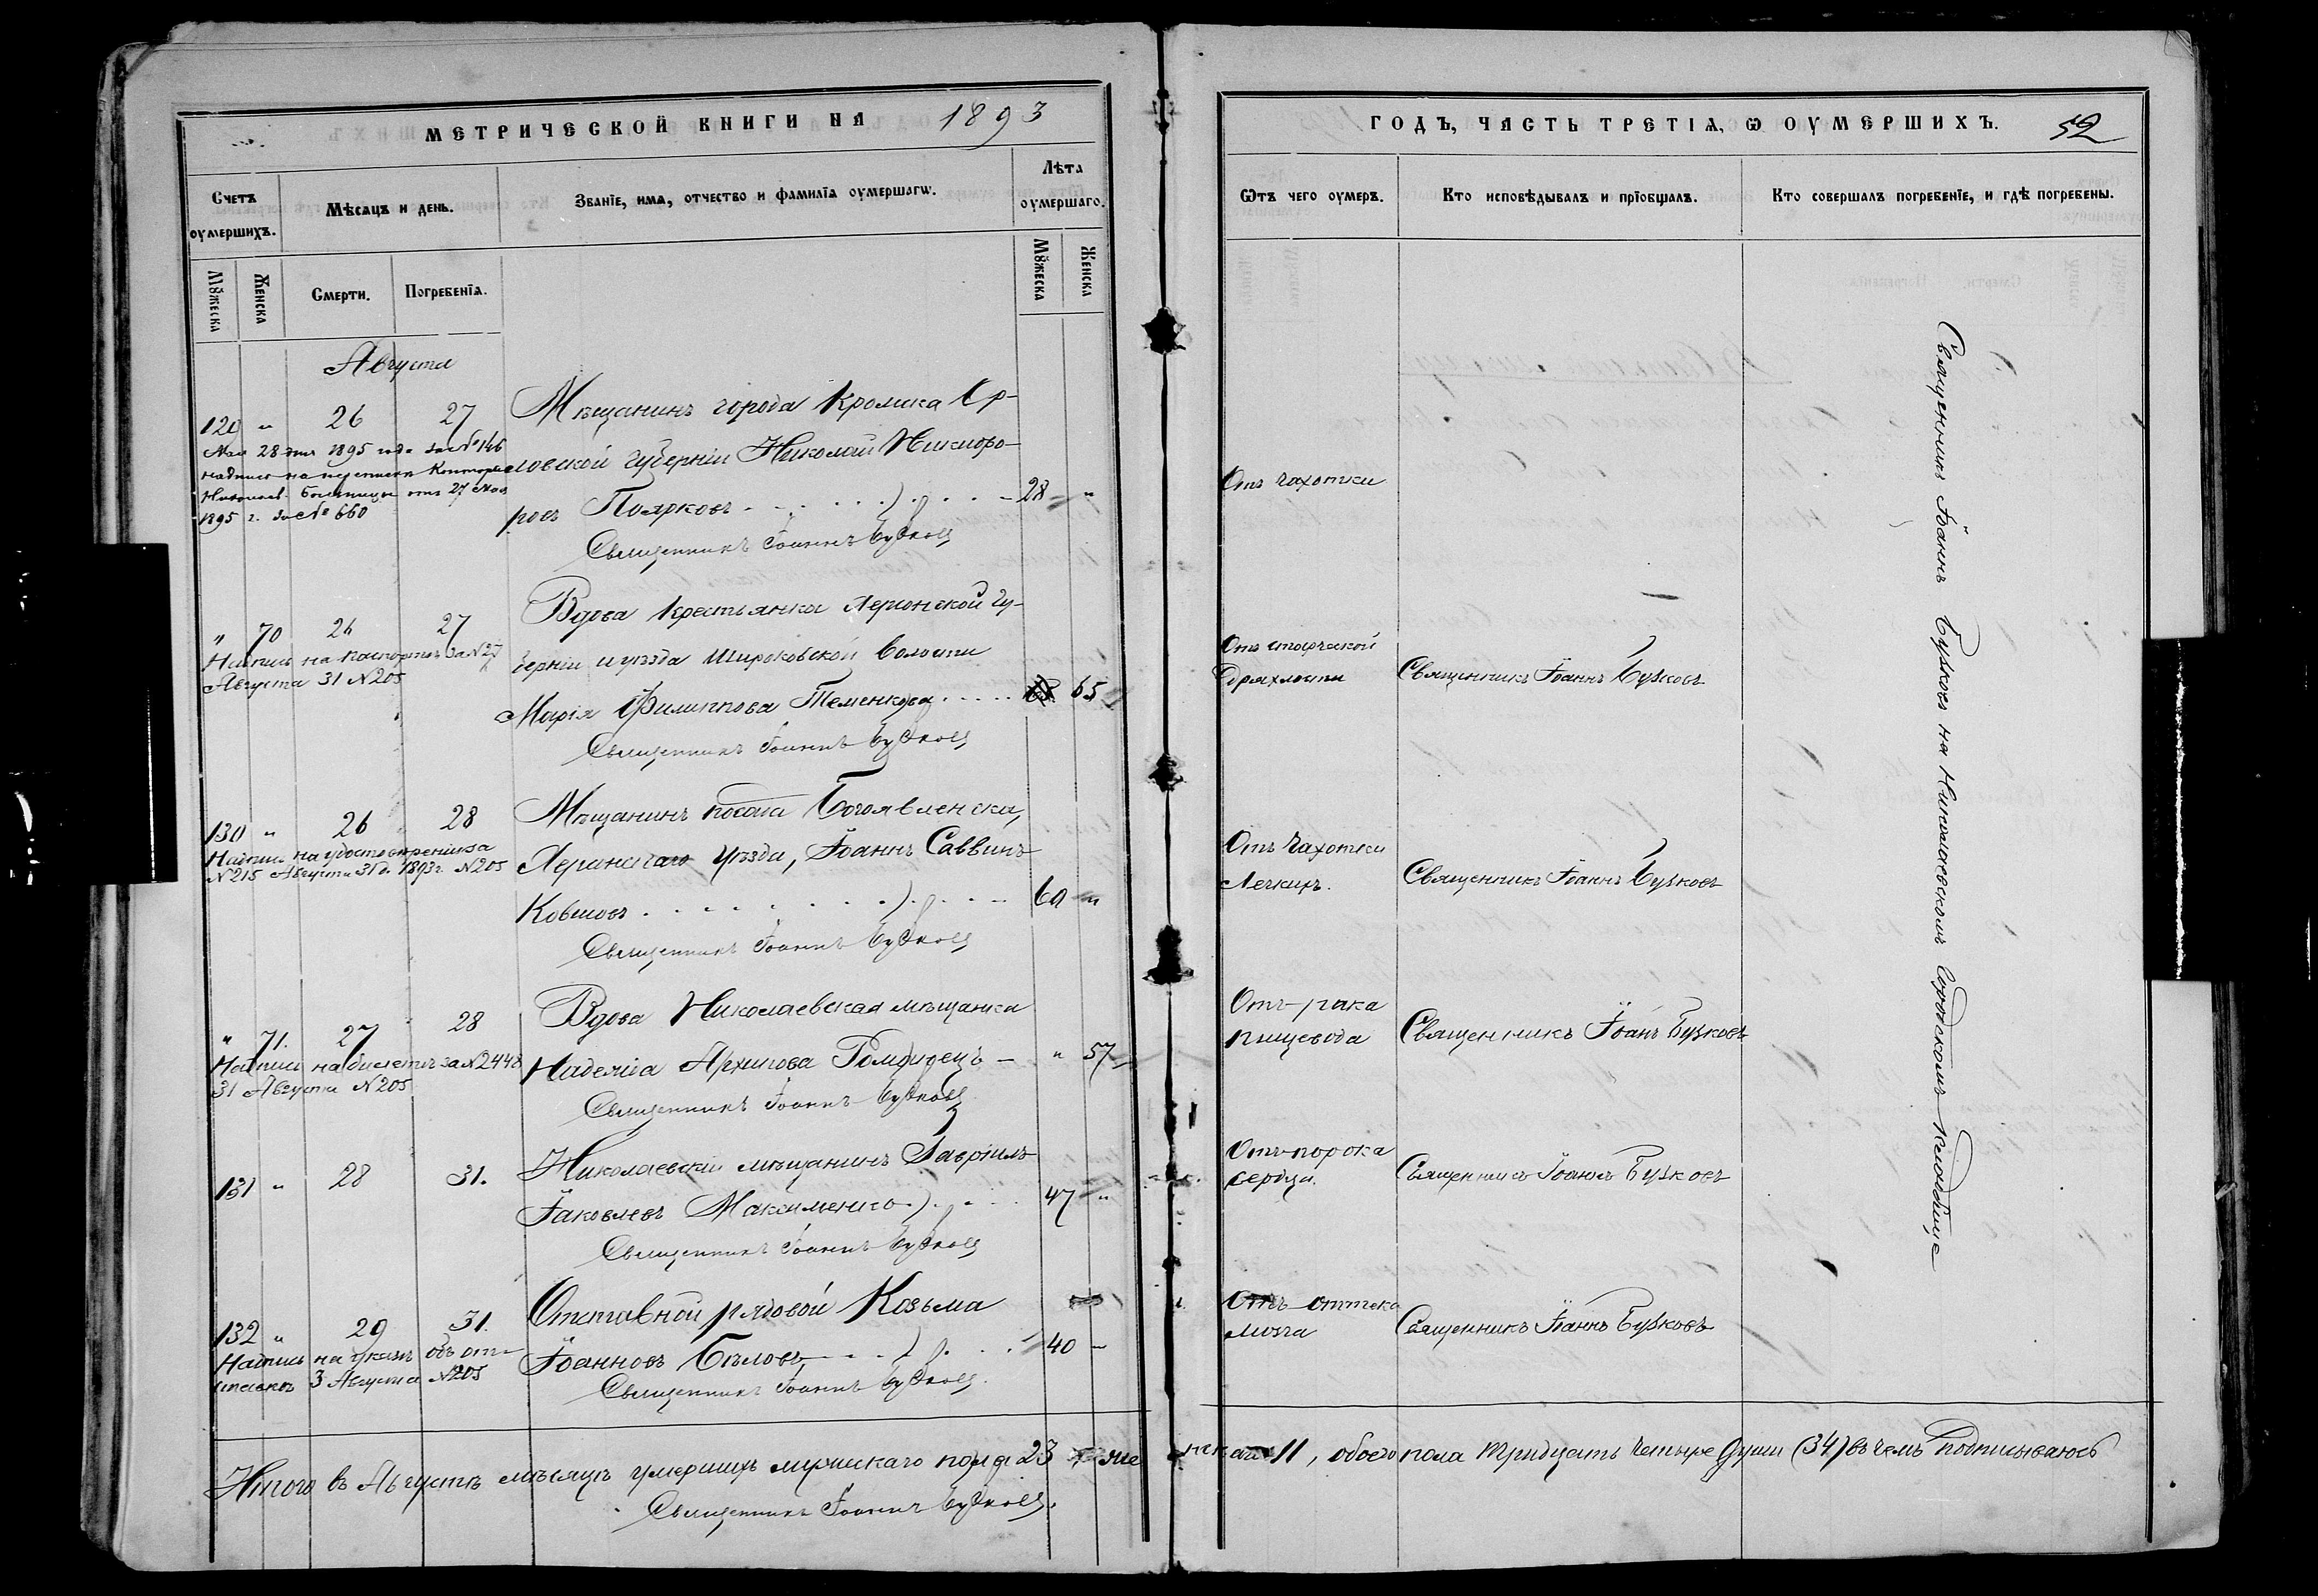 МЕТРИЧЕСКОЙ КНИГИ НА 1893
Счетъ оумершихъ.
Мѣсяцъ и день.
Званїе, имя, отчество и фамилїа оумершагѡ.
Лѣта оумершаго.
Мꙋжеска
Женска
Смерти.
Погребенїѧ.
Мꙋжеска
Женска
Августа
129 " 26 27
Мая 28 дня 1895 года за № 146
надпись на
Николаев. Больницы отъ 27 Мая
1895 г. за № 660
Мѣщанинъ города Кромска Ор-
ловской губерніи Николай Никифо-
ровъ Поярковъ 28 "
Священникъ Іоаннъ Бужковъ
" 70 26 27
Надпись на паспортѣ за № 27
Августа 31 № 205
Вдова крестьянка Херсонской гу-
берніи и уѣзда Широковской волости
Марія Филиппова Теменкова 65
Священникъ Іоаннъ Бужковъ
130 " 26 28
Надпись на удостовѣреніи за
№ 215 Августа 31 д. 1893 г. № 205
Мѣщанинъ посада Богоявленска,
Херсонскаго уѣзда, Іоаннъ Саввинъ
Ковшовъ 60 "
Священникъ Іоаннъ Бужковъ
" 71. 27 28
Надпись на билетѣ за № 2448
31 Августа № 205
Вдова Николаевская мѣщанка
Надежда Архипова " 57
Священникъ Іоаннъ Бужковъ
131 " 28 31.
Николаевскій мѣщанинъ Гавріилъ
Іаковлевъ Максименко 47 "
Священникъ Іоаннъ Бужковъ
132 " 29 31.
Надпись на указѣ объ от-
ставкѣ 3 Августа № 205
Отставной рядовой Козьма
Іоанновъ Бѣловъ 40 -
Священникъ Іоаннъ Бужковъ
Итого въ Августѣ мѣсяцѣ умершихъ мужскаго пола 23 же
Священникъ Іоаннъ Бужковъ.
ГОДЪ, ЧАСТЬ ТРЕТІЯ, Ѡ ОУМЕРШИХЪ. 52
Ѿтъ чего оумеръ.
Кто исповѣдывалъ и прїобщалъ.
Кто совершалъ погребенїе, и гдѣ погребены.
Отъ чахотки
Отъ старческой
дряхлости
Священникъ Іоаннъ Бужковъ
Отъ чахотки
легкихъ.
Священникъ Іоаннъ Бужковъ
Отъ рака
пищевода
Священникъ Іоанъ Бужковъ
Отъ порока
сердца.
Священникъ Іоаннъ Бужковъ
Отъ оттека
мозга
Священникъ Іоаннъ Бужковъ
Священникъ Іоаннъ Бужковъ на Николаевскомъ городскомъ кладбище
нскаго 11, обоего пола тридцать четыре души (34) въ чемъ подписываюсь